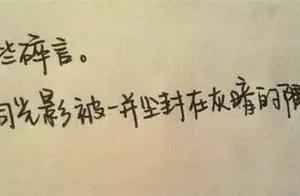 些碎言。
同光影被一并尘封在灰暗的隅